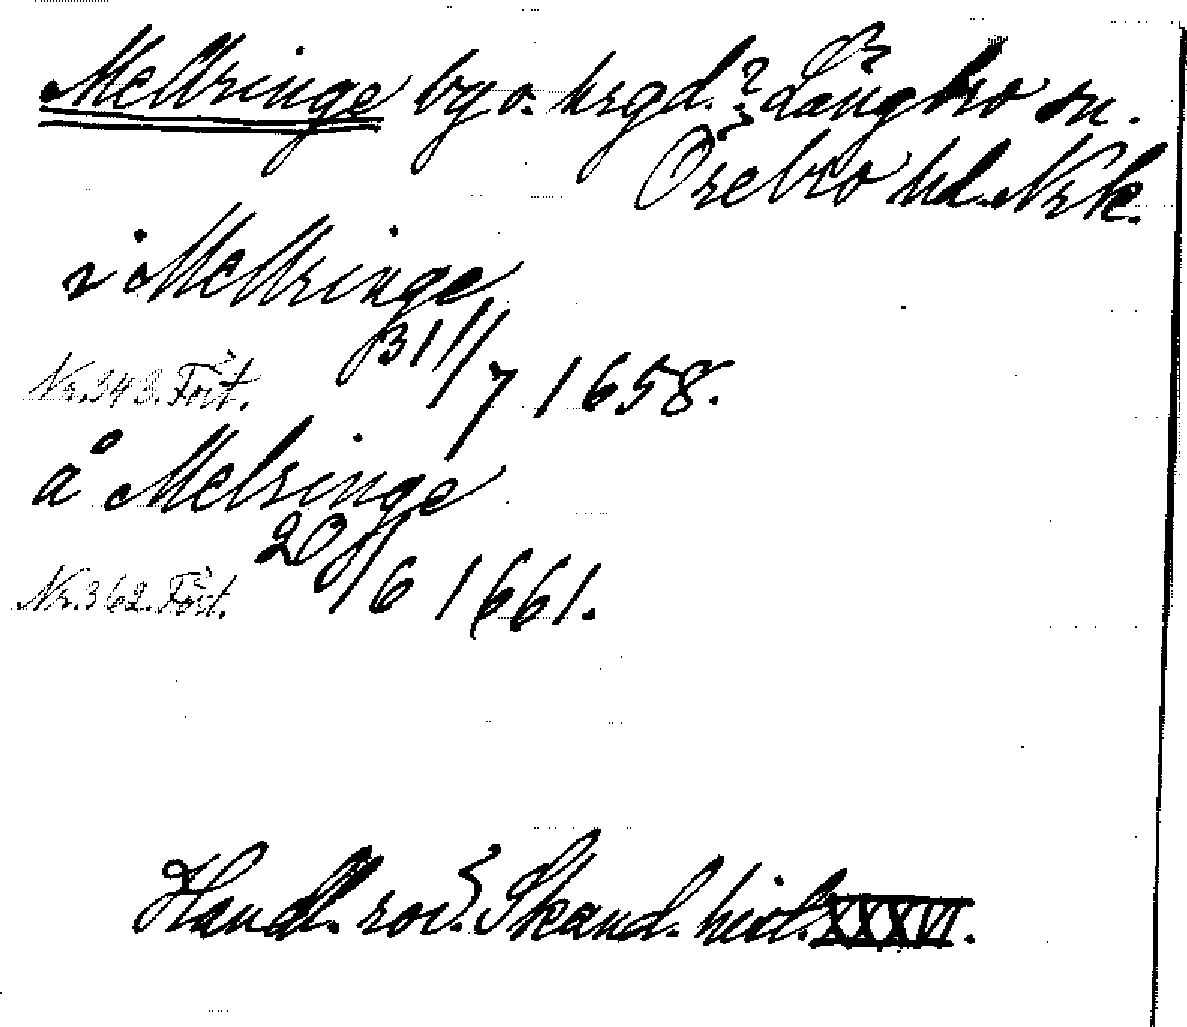 Mellringe by o. hrgd.? Längbro sn.
Örebro hd. Nrk.
i Mellringe
31/7 1658.
Nr. 343. Fört.
å Melringe
20/6 1661.
Nr. 362. Fört.
Handl. rör. Skand. hist. XXXVI.